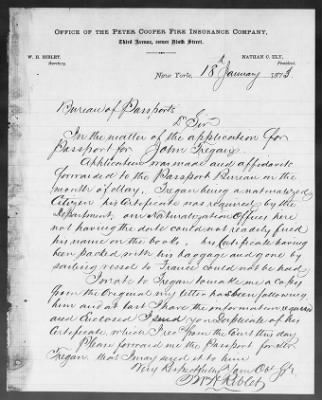 OFFICE OF THE PETER COOPER FIRE INSURANCE COMPANY,
Third Avenue, corner Ninth Street.
W. H. RIBLET, Secretary. NATHAN C. ELY, President.
New York, 18th January 1873.
Bureau of Passports
Dr Sir
In the matter of the application for
Passport for John Tregan
Application was made and affidavits
forwarded to the Passport Bureau on the
month of May. Tregan being a naturalized
Citizen his Certificate was required by the
Department, our Naturalization Offices here
not having the date could not readily find
his name on the books, his Certificate having
been packed with his baggage and gone by
sailing vessel to France could not be had
I wrote to Tregan to make me a copy
from the Original my letter has been following
him and at last I have the information required
and Enclosed I send you Duplicate of his
Certificate, which I got from the Court this day
Please forward me the Passport for Mr
Tregan that I may send it to him
Very Respectfully Your Obt St
W H Riblet